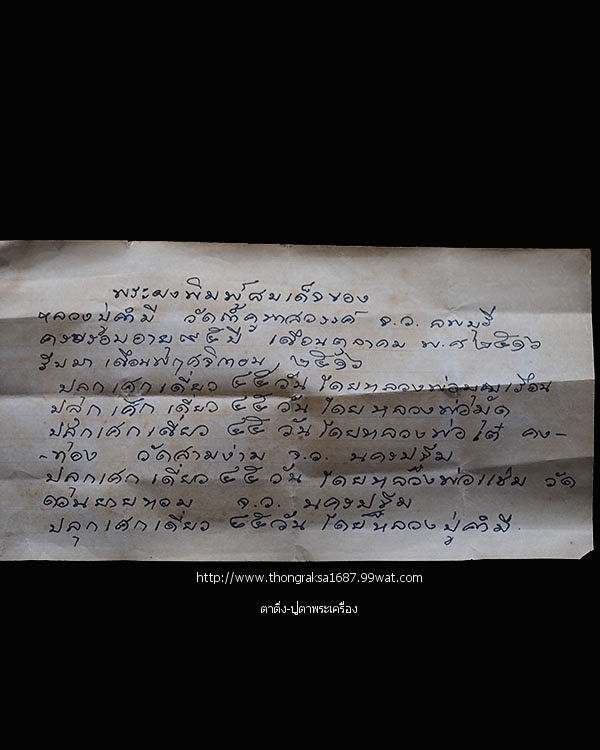 พระผงพิมพ์สมเด็จของ
หลวงปู่คำมี วัดถ้ำคูหาสวรรค์ จ.ว. ลพบุรี
ครบรอบอายุ ๘๕ ปี เดือนตุลาคม พ.ศ ๒๕๑๖
รับมาเดือนพฤศจิกายน ๒๕๑๖
ปลุกเศกเดี่ยว ๔๕ วัน โดยหลวงพ่อ
ปลุกเศกเดี่ยว ๔๕ วัน โดยหลวงพ่อมัด
ปลุกเศกเดี่ยว ๔๕ วัน โดยหลวงพ่อเต๋ คง-
-ทอง วัดสามง่าม จ.ว. นครปฐม
ปลุกเศกเดี่ยว ๔๕ วัน โดยหลวงพ่อแช่ม วัด
ดอนยายหอม จ.ว. นครปฐม
ปลุกเศกเดี่ยว ๔๕ วัน โดยหลวงปู่คำมี
http://www.thongraksa1687.99wat.com
ตาดึ๋ง-ปูตาพระเครื่อง